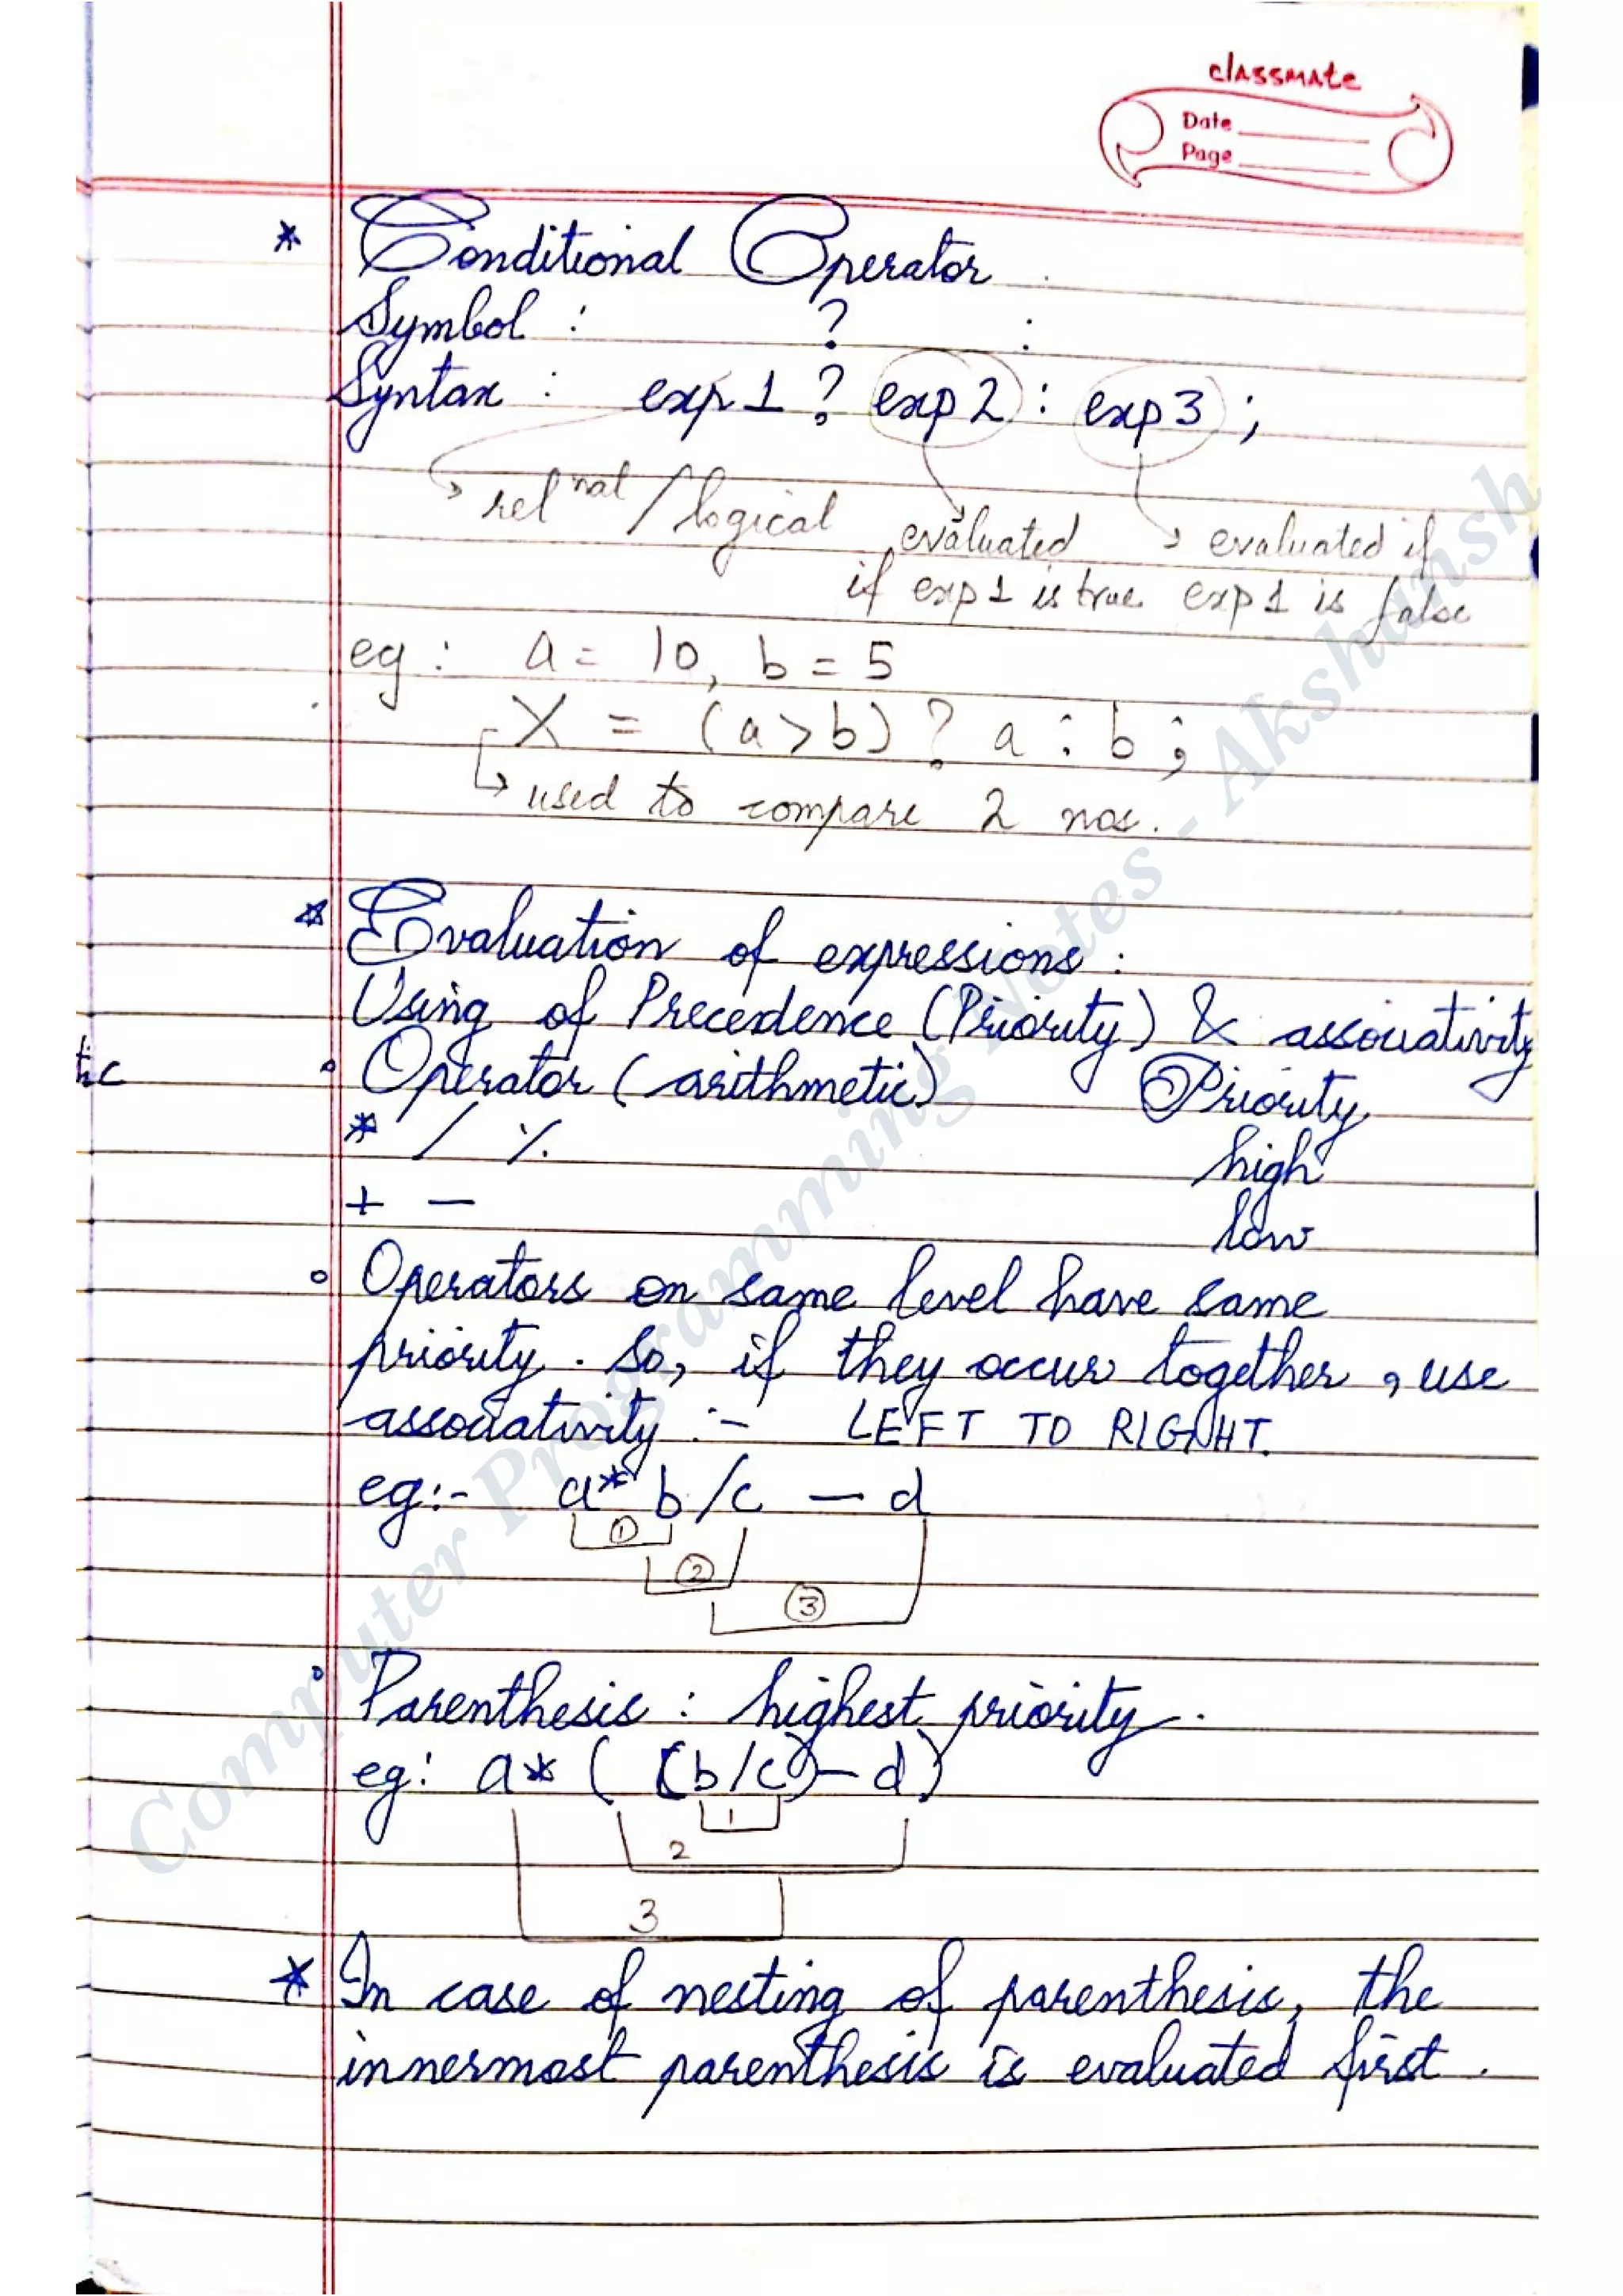 classmate
Date
Page
* Conditional Operator
Symbol : ? :
Syntax : exp 1 ? exp 2 : exp 3 ;
rel nal / logical evaluated if exp 1 is true
evaluated if exp 1 is false
eg : a = 10, b = 5
X = (a > b) ? a : b ;
used to compare 2 nos.
* Evaluation of expressions :
Using of Precedence (Priority) & associativity
tic
° Operator (arithmetic) Priority
* / % high
+ - low
° Operators on same level have same
priority. So, if they occur together, use
associativity :- LEFT TO RIGHT.
eg:- a * b / c - d
1
2
3
° Parenthesis : highest priority.
eg: a * ( (b/c) - d )
1
2
3
* In case of nesting of parenthesis, the
innermost parenthesis is evaluated first.
Computer Programming Notes - Akshansh